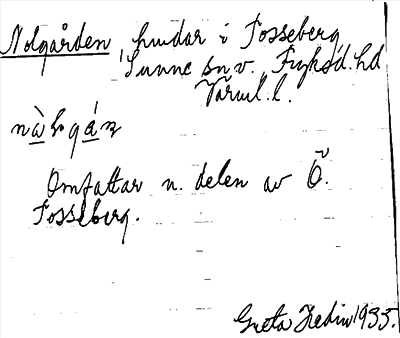 Nolgården, hmdar i Fosseberg
Sunne sn v. Fryksd. hd
Värml. l.
Omfattar n. delen av Ö.
Fosseberg.
Greta Hedin 1935.